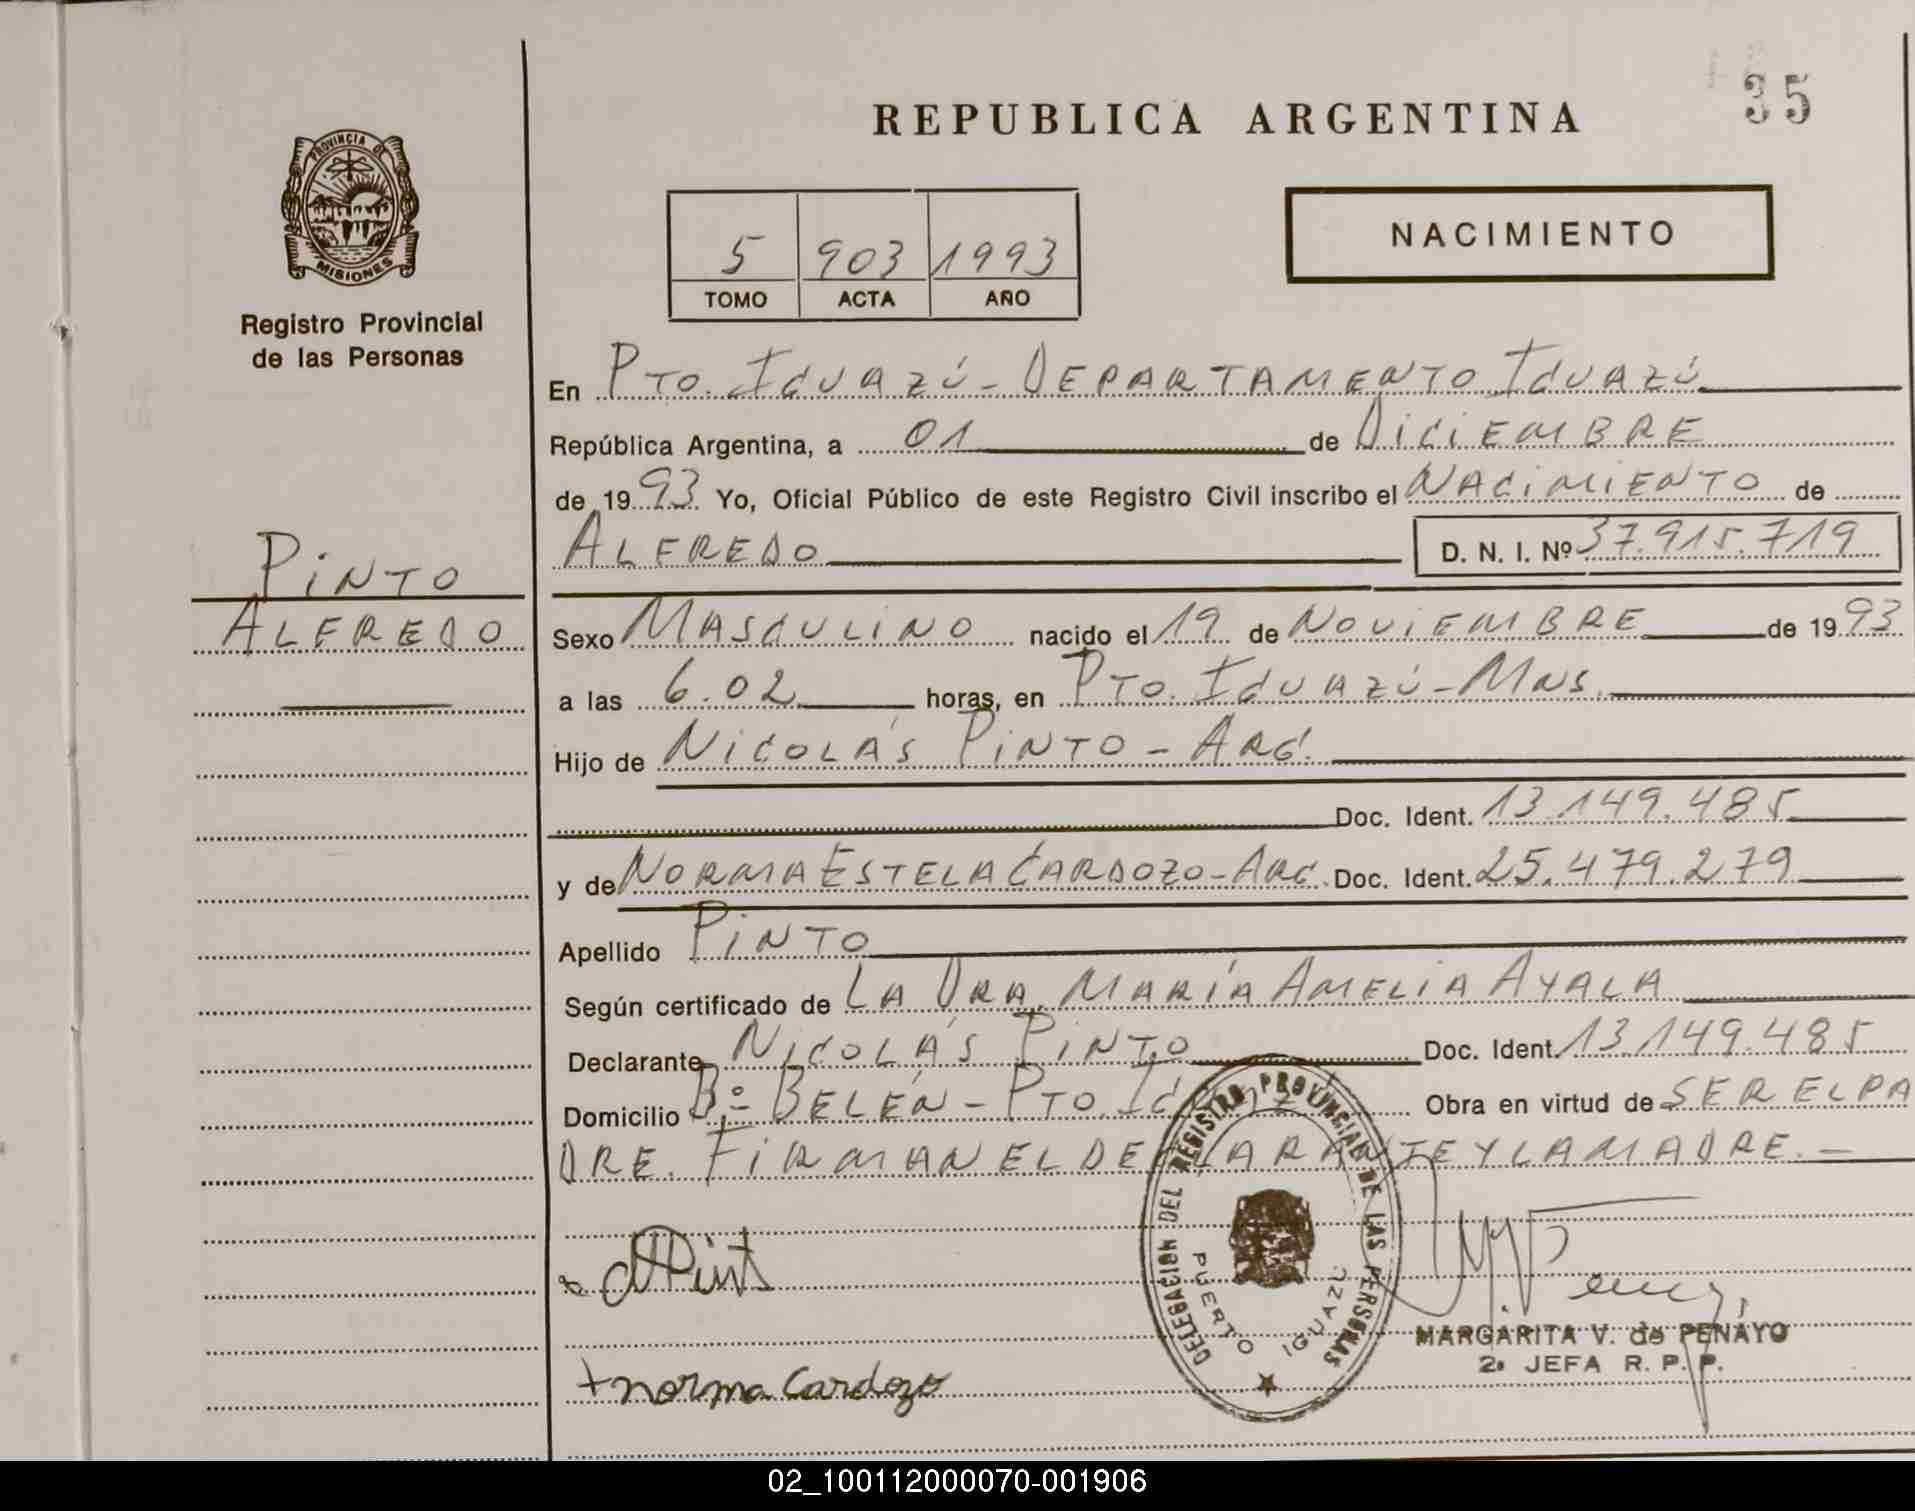 35
REPUBLICA ARGENTINA
PROVINCIA DE
MISIONES
Registro Provincial
de las Personas
5 903 1993
TOMO ACTA AÑO
NACIMIENTO
En PTO. IGUAZÚ - DEPARTAMENTO IGUAZÚ
República Argentina, a 01 de DICIEMBRE
de 1993 Yo, Oficial Público de este Registro Civil inscribo el NACIMIENTO de
ALFREDO D. N. I. Nº 37.915.719
PINTO
ALFREDO
Sexo MASCULINO nacido el 19 de NOVIEMBRE de 1993
a las 6.02 horas, en PTO. IGUAZÚ - MNS.
Hijo de NICOLÁS PINTO - ARG.
Doc. Ident. 13.149.485
y de NORMA ESTELA CARDOZO - ARG. Doc. Ident. 25.479.279
Apellido PINTO
Según certificado de LA DRA. MARÍA AMELIA AYALA
Declarante NICOLÁS PINTO Doc. Ident. 13.149.485
Domicilio Bº BELÉN - PTO. IGUAZÚ Obra en virtud de SER EL PA
DRE. FIRMAN EL DECLARANTE Y LA MADRE. -
DELEGACION DEL REGISTRO PROVINCIAL DE LAS PERSONAS
PUERTO IGUAZU
MARGARITA V. de PENAYO
2ª JEFA R. P. P.
+ norma Cardozo
02_100112000070-001906